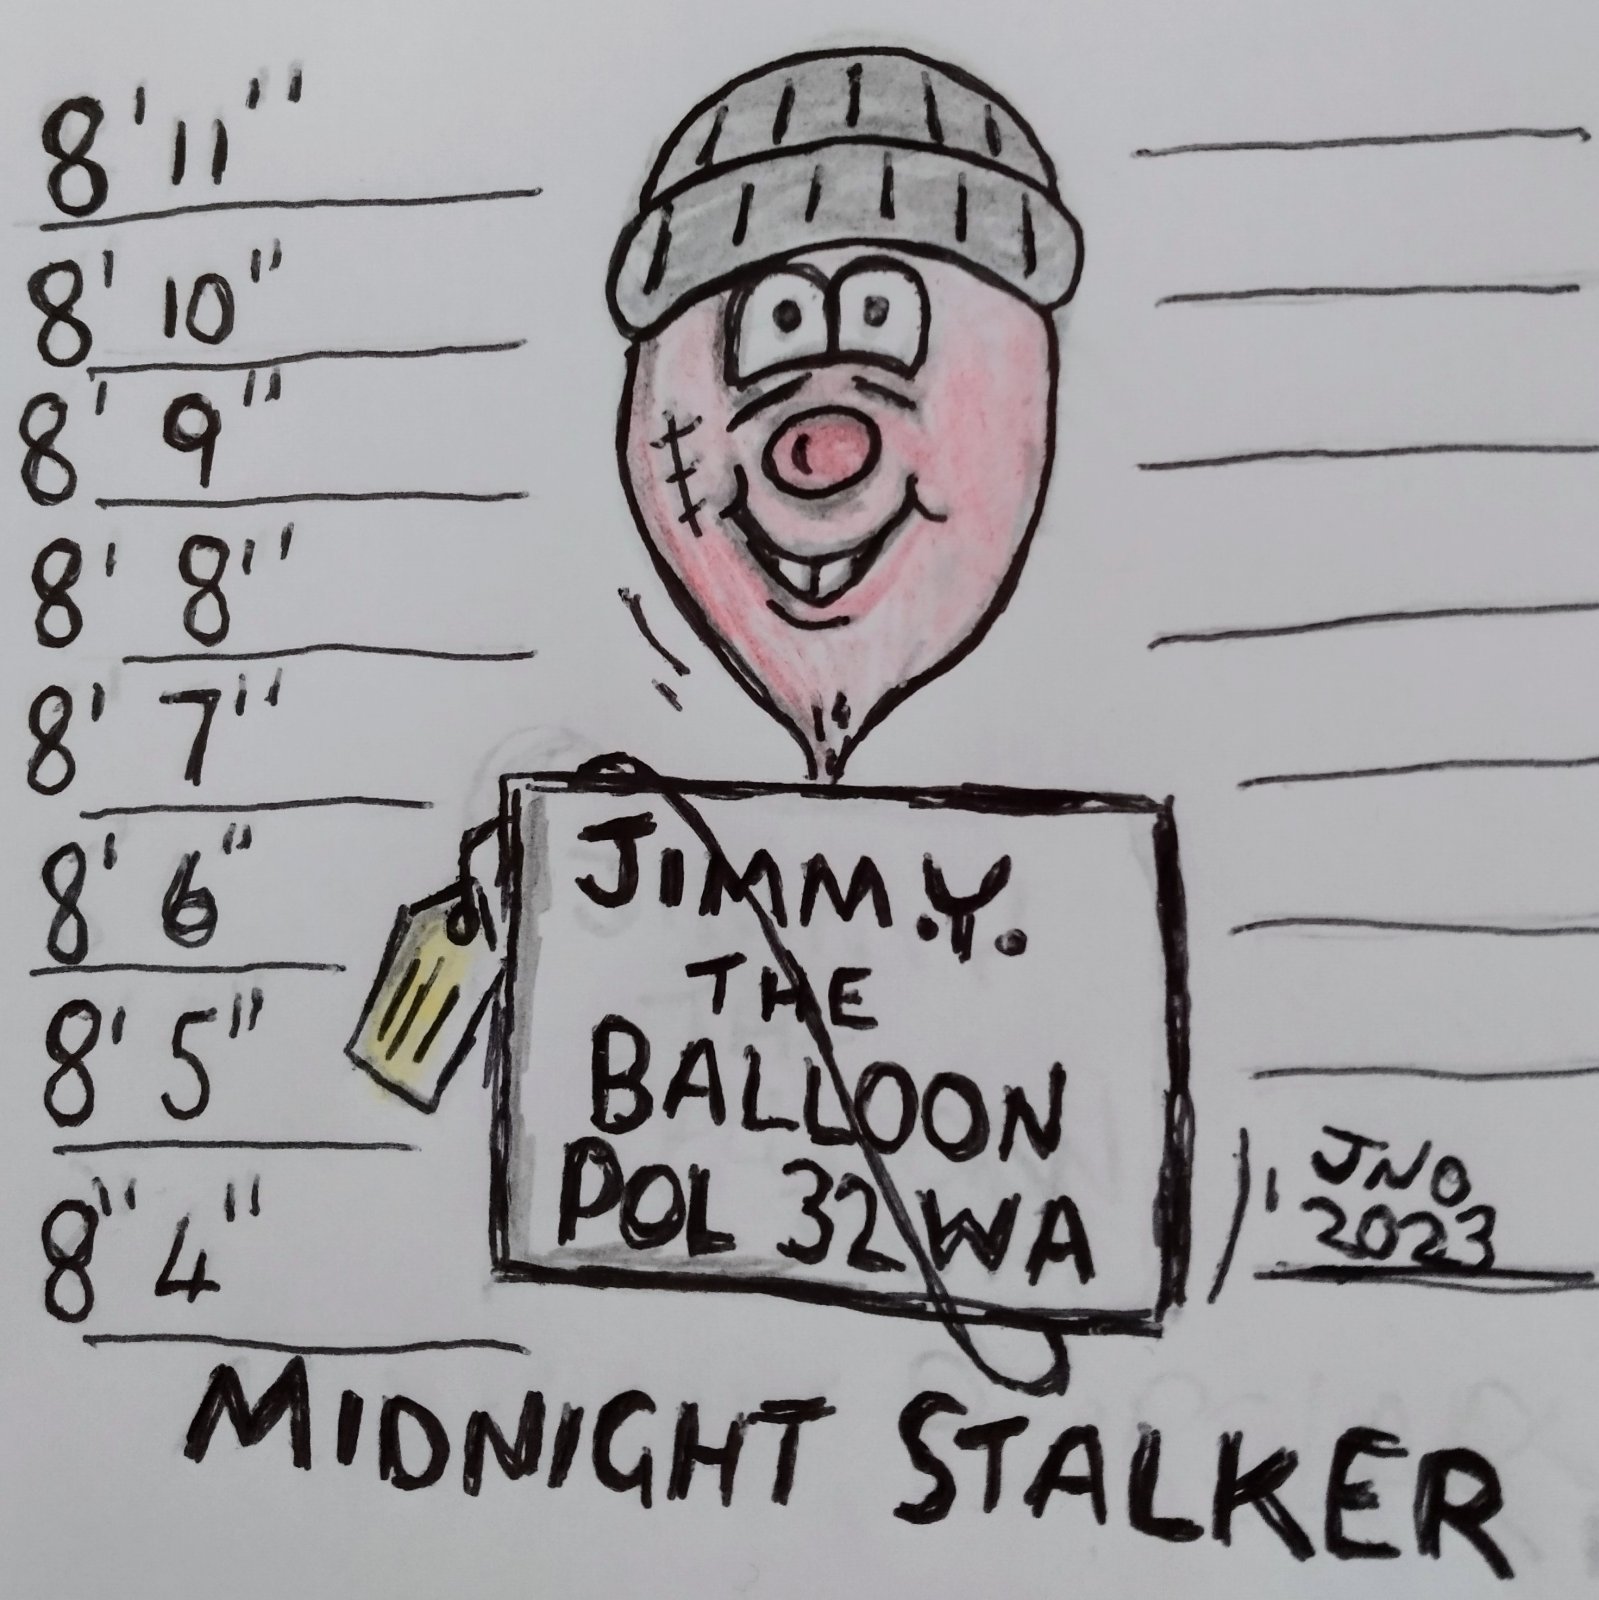 8'11''
8'10''
8'9''
8'8''
8'7''
8'6''
8'5''
8''4''
JIMM.Y.
THE
BALLOON
POL 32 WA
JNO
2023
MIDNIGHT STALKER